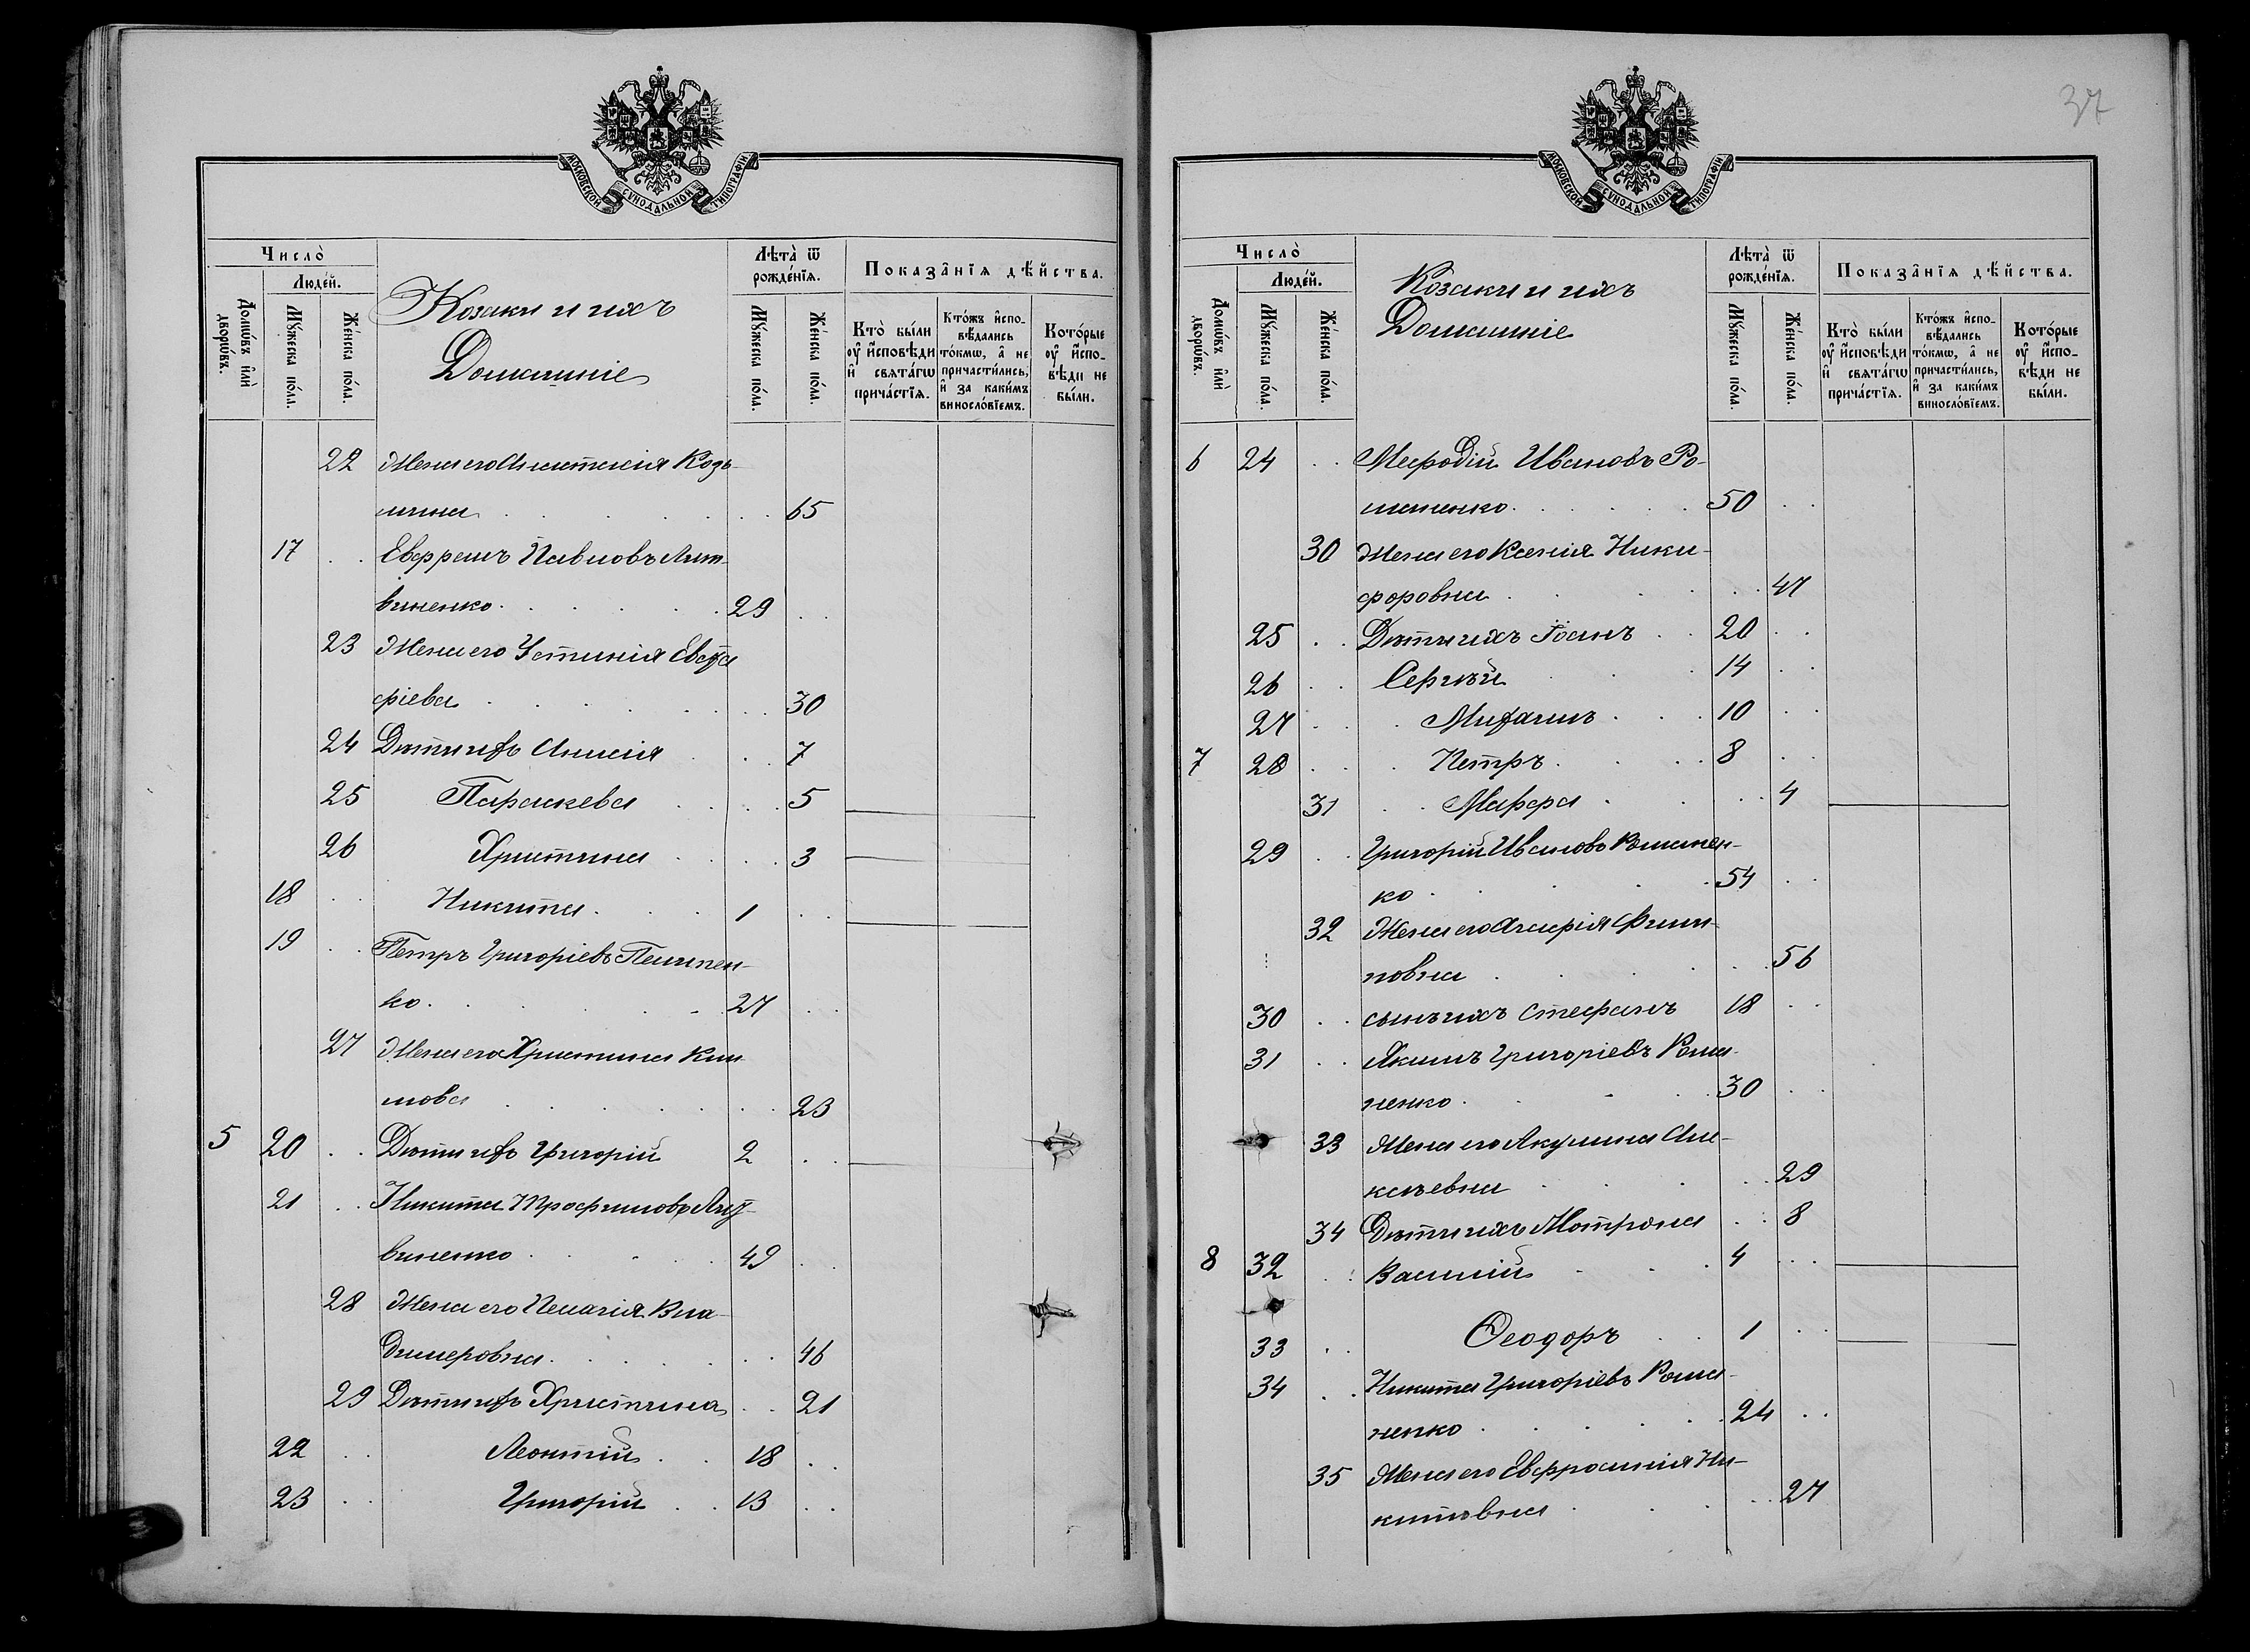 МОСКОВСКОЙ СУНОДАЛЬНОЙ ТИПОГРАФІИ
Число̀
Людéй.
Домѡ́въ и҆лѝ дворѡ́въ.
Мꙋ́жеска по́ла.
Же́нска по́ла.
Козаки и ихъ
Домашніе
Лѣта̀ ѿ рожде́нїѧ.
Мꙋ́жеска по́ла.
Же́нска по́ла.
Показа̑нїѧ дѣ́йства.
Кто̀ бы́ли оу҆ и҆сповѣди и҆ свѧта́гѡ прича́стїѧ.
Кто́жъ и҆сповѣ́дались то́кмѡ, а҆ не причасти́лись, и҆ за каки́мъ винослóвїемъ.
Кото́рые оу҆ и҆сповѣди не бы́ли.
22 Жена его Анастасія Козь-
мина 65
17 Евфремъ Павловъ Лит-
виненко 29
23 Жена его Устинія Евста
фіева 30
24 Дѣти ихъ Анисія 7
25 Параскева 5
26 Христина 3
18 Никита 1
19 Петръ Григоріевъ
ко 27
27 Жена его Христина Кли
мова 23
5 20 Дѣти ихъ Григорій 2
21 Никита Трофимовъ Лит-
виненко 49
28 Жена его Пелагія Вла-
димеровна 46
29 Дѣти ихъ Христина 21
22 Леонтій 18
23 Григорій 13
37
МОСКОВСКОЙ СУНОДАЛЬНОЙ ТИПОГРАФІИ
Число̀
Людéй.
Домѡ́въ и҆лѝ дворѡ́въ.
Мꙋ́жеска по́ла.
Же́нска по́ла.
Козаки и ихъ
Домашніе
Лѣта̀ ѿ рожде́нїѧ.
Мꙋ́жеска по́ла.
Же́нска по́ла.
Показа̑нїѧ дѣ́йства.
Кто̀ бы́ли оу҆ и҆сповѣди и҆ свѧта́гѡ прича́стїѧ.
Кто́жъ и҆сповѣ́дались то́кмѡ, а҆ не причасти́лись, и҆ за каки́мъ винослóвїемъ.
Кото́рые оу҆ и҆сповѣди не бы́ли.
6 24 Мефодій Ивановъ Ро-
маненко 50
30 Жена его Ксенія Ники-
форовна 47
25 Дѣти ихъ Іоанъ 20
26 Сергѣй 14
27 10
7 28 Петръ 8
31 Марфа 4
29 Григорій Ивановъ Романен-
ко 54
32 Жена его Агафія Филип-
повна 56
30 сынъ ихъ Стефанъ 18
31 Якимъ Григоріевъ Рома-
ненко 30
33 Жена его Акулина Але-
ксѣевна 29
34 Дѣти ихъ Мотрона 8
8 32 Василій 4
33 Ѳеодоръ 1
34 Никита Григоріевъ Рома-
ненко 24
35 Жена его Евфросинія Ни-
китовна 27